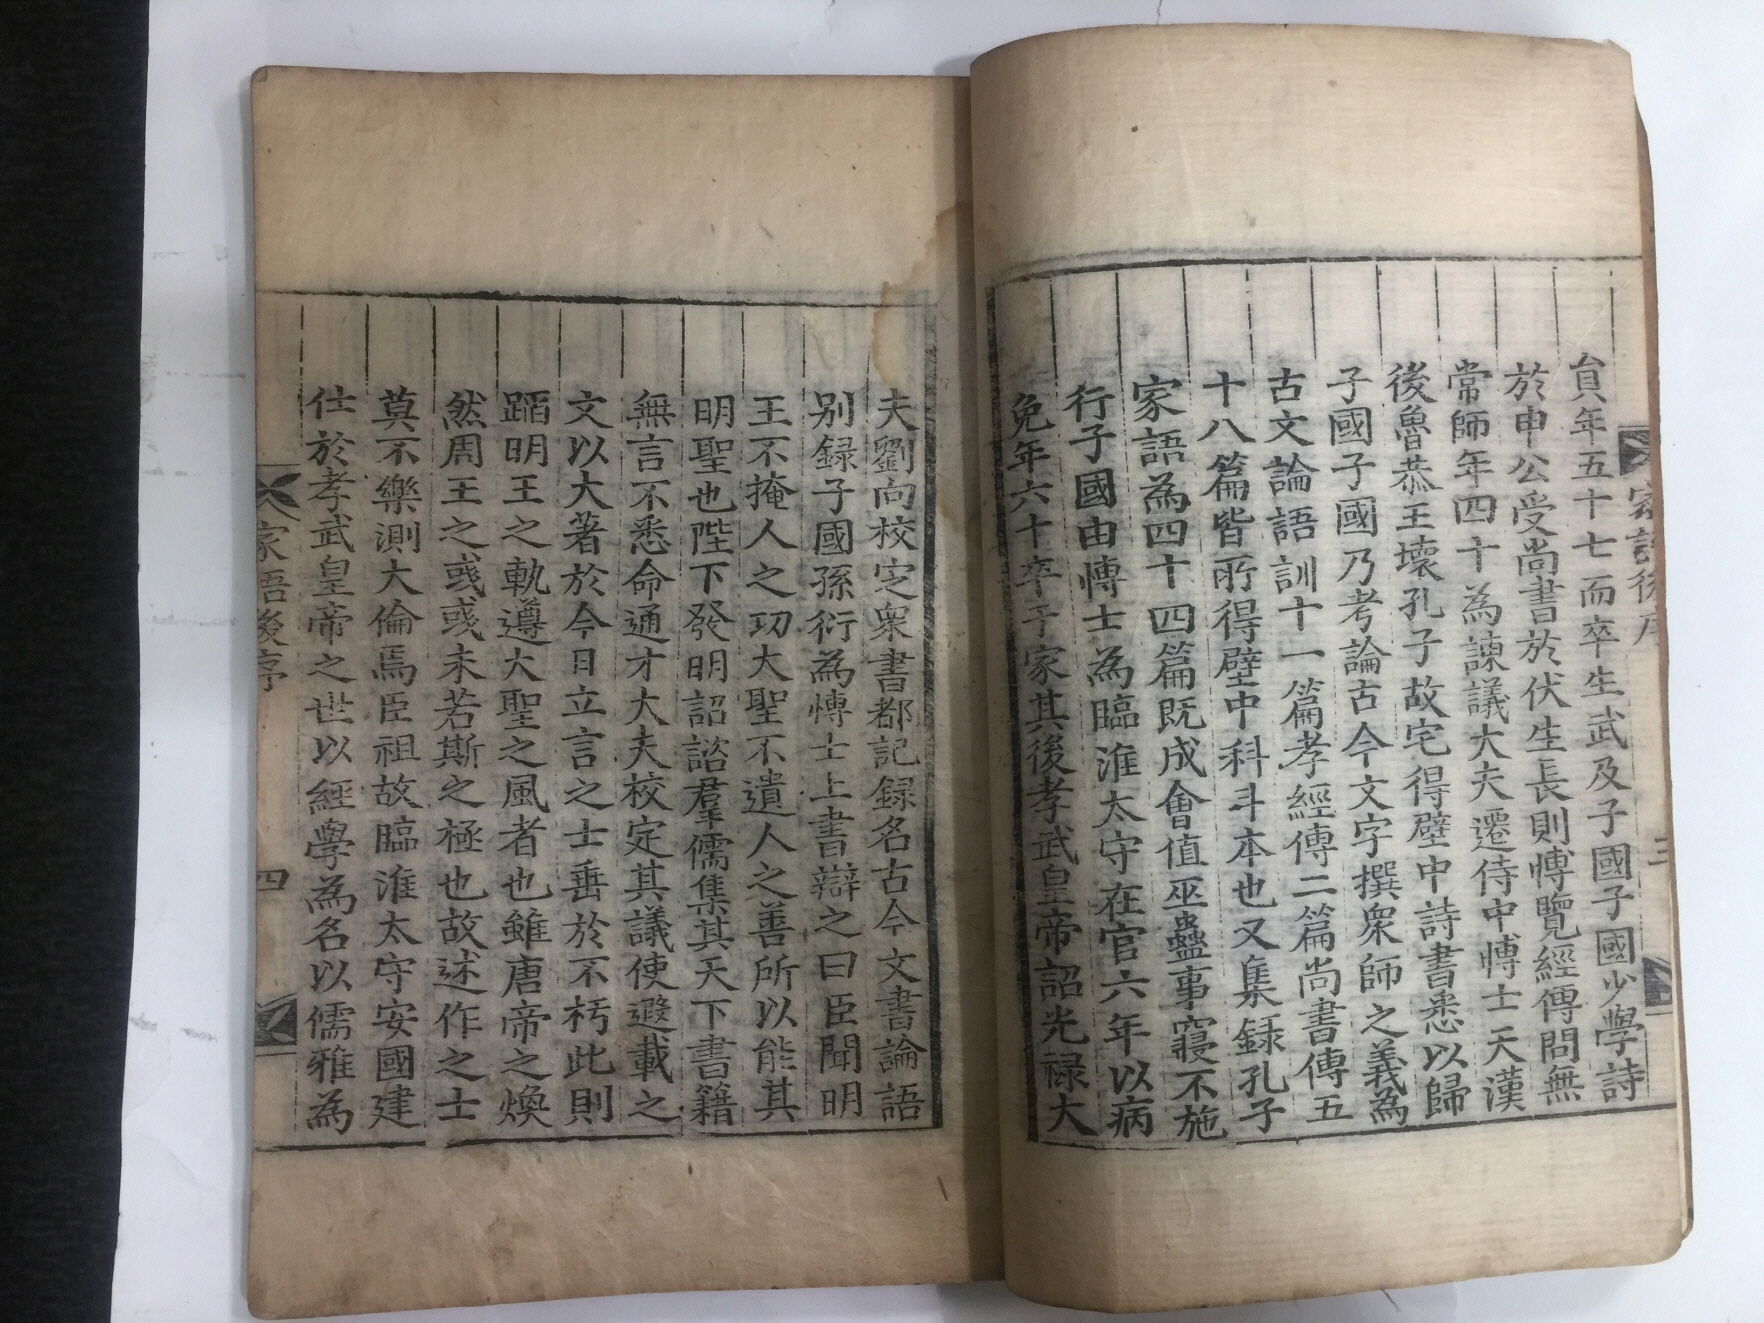 家語後序
三
貟年五十七而卒生武及子國子國少學詩
於申公受尚書於伏生長則博覽經傳問無
常師年四十為諫議大夫遷侍中博士天漢
後魯恭王壞孔子故宅得壁中詩書悉以歸
子國子國乃考論古今文字撰衆師之義為
古文論語訓十一篇孝經傳二篇尚書傳五
十八篇皆所得壁中科斗本也又集録孔子
家語為四十四篇既成會值巫蠱事寢不施
行子國由博士為臨淮太守在官六年以病
免年六十卒于家其後孝武皇帝詔光禄大
夫劉向校定衆書都記録名古今文書論語
别録子國孫衍為博士上書辯之曰臣聞明
王不掩人之功大聖不遺人之善所以能其
明聖也陛下發明詔諮羣儒集其天下書籍
無言不悉命通才大夫校定其議使遐載之
文以大著於今日立言之士垂於不朽此則
蹈明王之軌遵大聖之風者也雖唐帝之煥
然周王之彧彧未若斯之極也故述作之士
莫不樂測大倫焉臣祖故臨淮太守安國建
仕於孝武皇帝之世以經學為名以儒雅為
家語後序
四